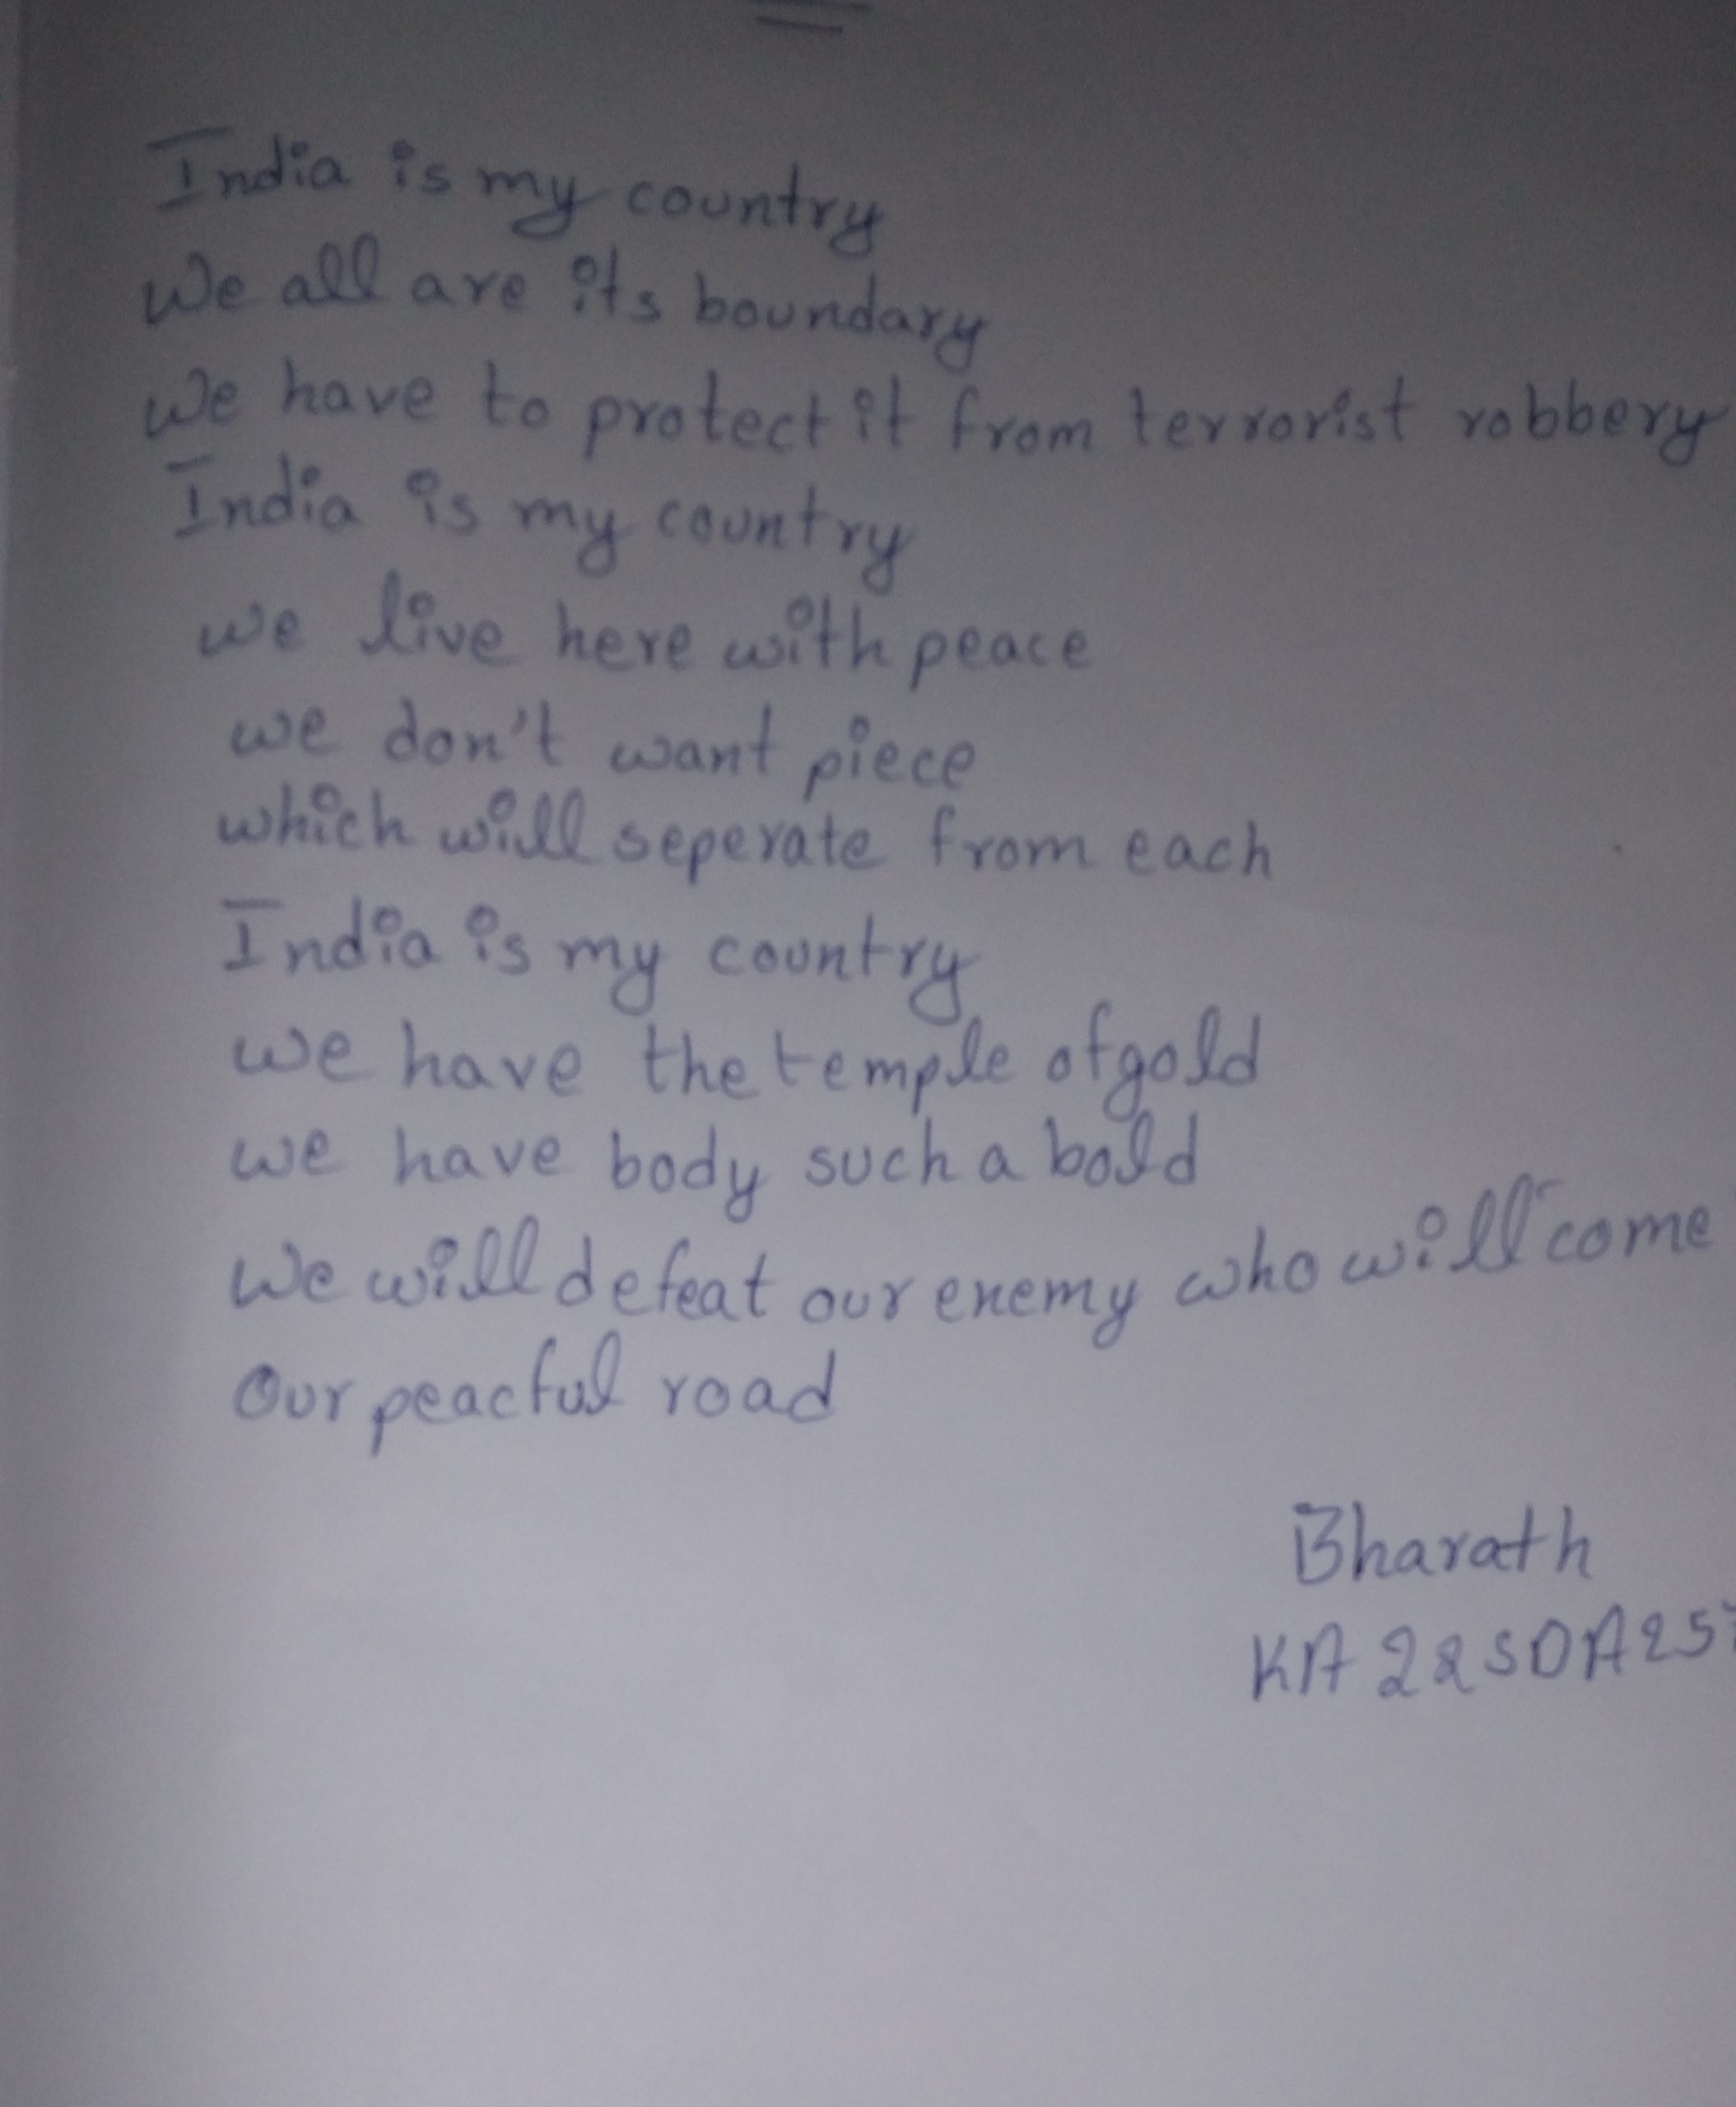 India is my country
We all are its boundary
We have to protect it from terrorist robbery
India is my country
we live here with peace
we don't want piece
which will seperate from each
India is my country
we have the temple of gold
we have body such a bold
We will defeat our enemy who will come
Our peacful road
Bharath